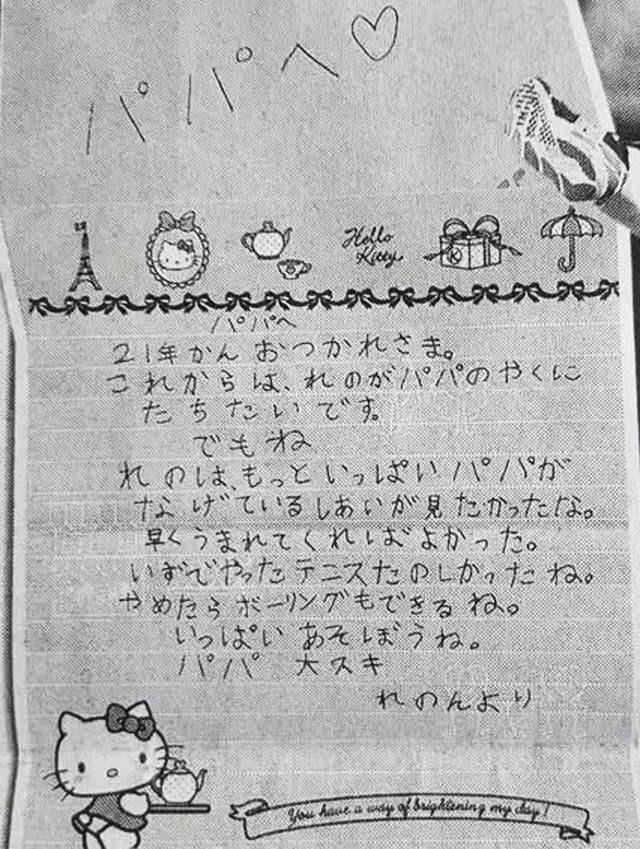 パパへ♡
Hello
Kitty
パパへ
21年かんおつかれさま。
これからは、れのがパパのやくに
たちたいです。
でもね
れのは、もっといっぱいパパが
なげているしあいが見たかったな。
早くうまれてくればよかった。
いずでやったテニスたのしかったね。
やめたらボーリングもできるね。
いっぱいあそぼうね。
パパ 大スキ
れのんより
You have a way of brightening my day!